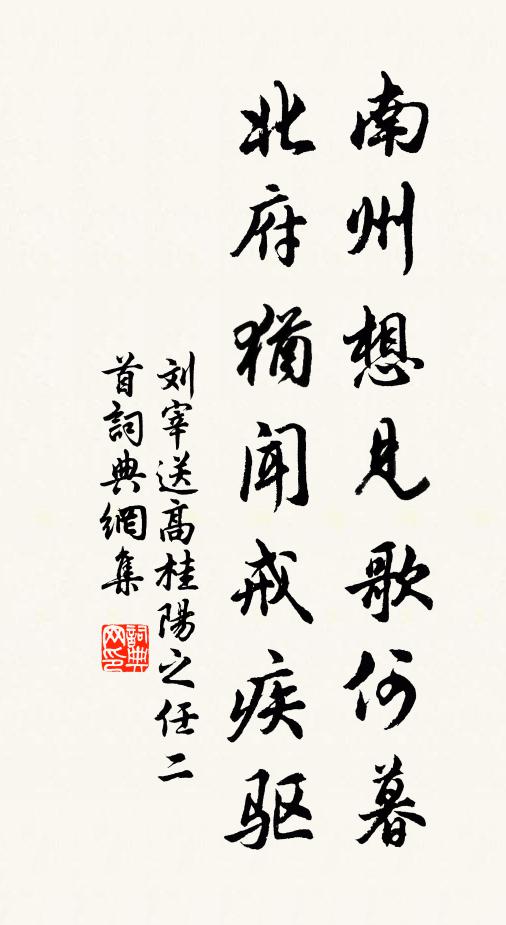 南州想見歌何暮
北府猶闻戒疾驱
刘宰送高桂陽之任二
首詞典網集
詞典
网印